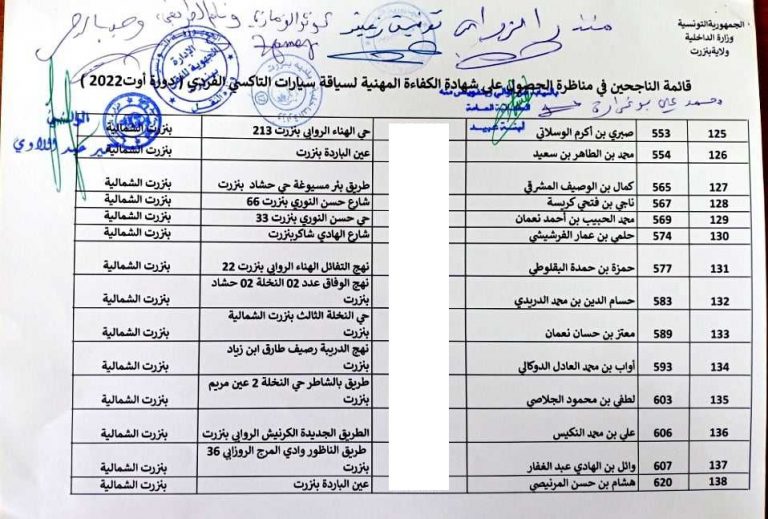 الجمهورية التونسية
وزارة الداخلية
ولاية بنزرت
قائمة الناجحين في مناظرة الحصول على شهادة الكفاءة المهنية لسياقة سيارات التاكسي الفردي ( دورة أوت2022 )
125 553 صبري بن أكرم الوسلاتي حي الهناء الروابي بنزرت 213 بنزرت الشمالية
126 554 محمد بن الطاهر بن سعيد عين الباردة بنزرت بنزرت الشمالية
127 565 كمال بن الوصيف المشرقي طريق بئر مسيوغة حي حشاد بنزرت بنزرت الشمالية
128 567 ناجي بن فتحي كريسة شارع حسن النوري بنزرت 66 بنزرت الشمالية
129 569 محمد الحبيب بن أحمد نعمان حي حسن النوري بنزرت 33 بنزرت الشمالية
130 574 حلمي بن عمار الفرشيشي شارع الهادي شاكربنزرت بنزرت الشمالية
131 577 حمزة بن حمدة البقلوطي نهج التفائل الهناء الروابي بنزرت 22 بنزرت الشمالية
132 583 حسام الدين بن محمد الدريدي نهج الوفاق عدد 02 النخلة 02 حشاد
بنزرت بنزرت الشمالية
133 589 معتز بن حسان نعمان حي النخلة الثالث بنزرت الشمالية
بنزرت بنزرت الشمالية
134 593 أواب بن محمد العادل الدوكالي نهج الدريبة رصيف طارق ابن زياد
بنزرت بنزرت الشمالية
135 603 لطفي بن محمود الجلاصي طريق بالشاطر حي النخلة 2 عين مريم
بنزرت بنزرت الشمالية
136 606 علي بن محمد النكيس الطريق الجديدة الكرنيش الروابي بنزرت بنزرت الشمالية
137 607 وائل بن الهادي عبد الغفار طريق الناظور وادي المرج الروزابي 36
بنزرت بنزرت الشمالية
138 620 هشام بن حسن المرنيصي عين الباردة بنزرت بنزرت الشمالية